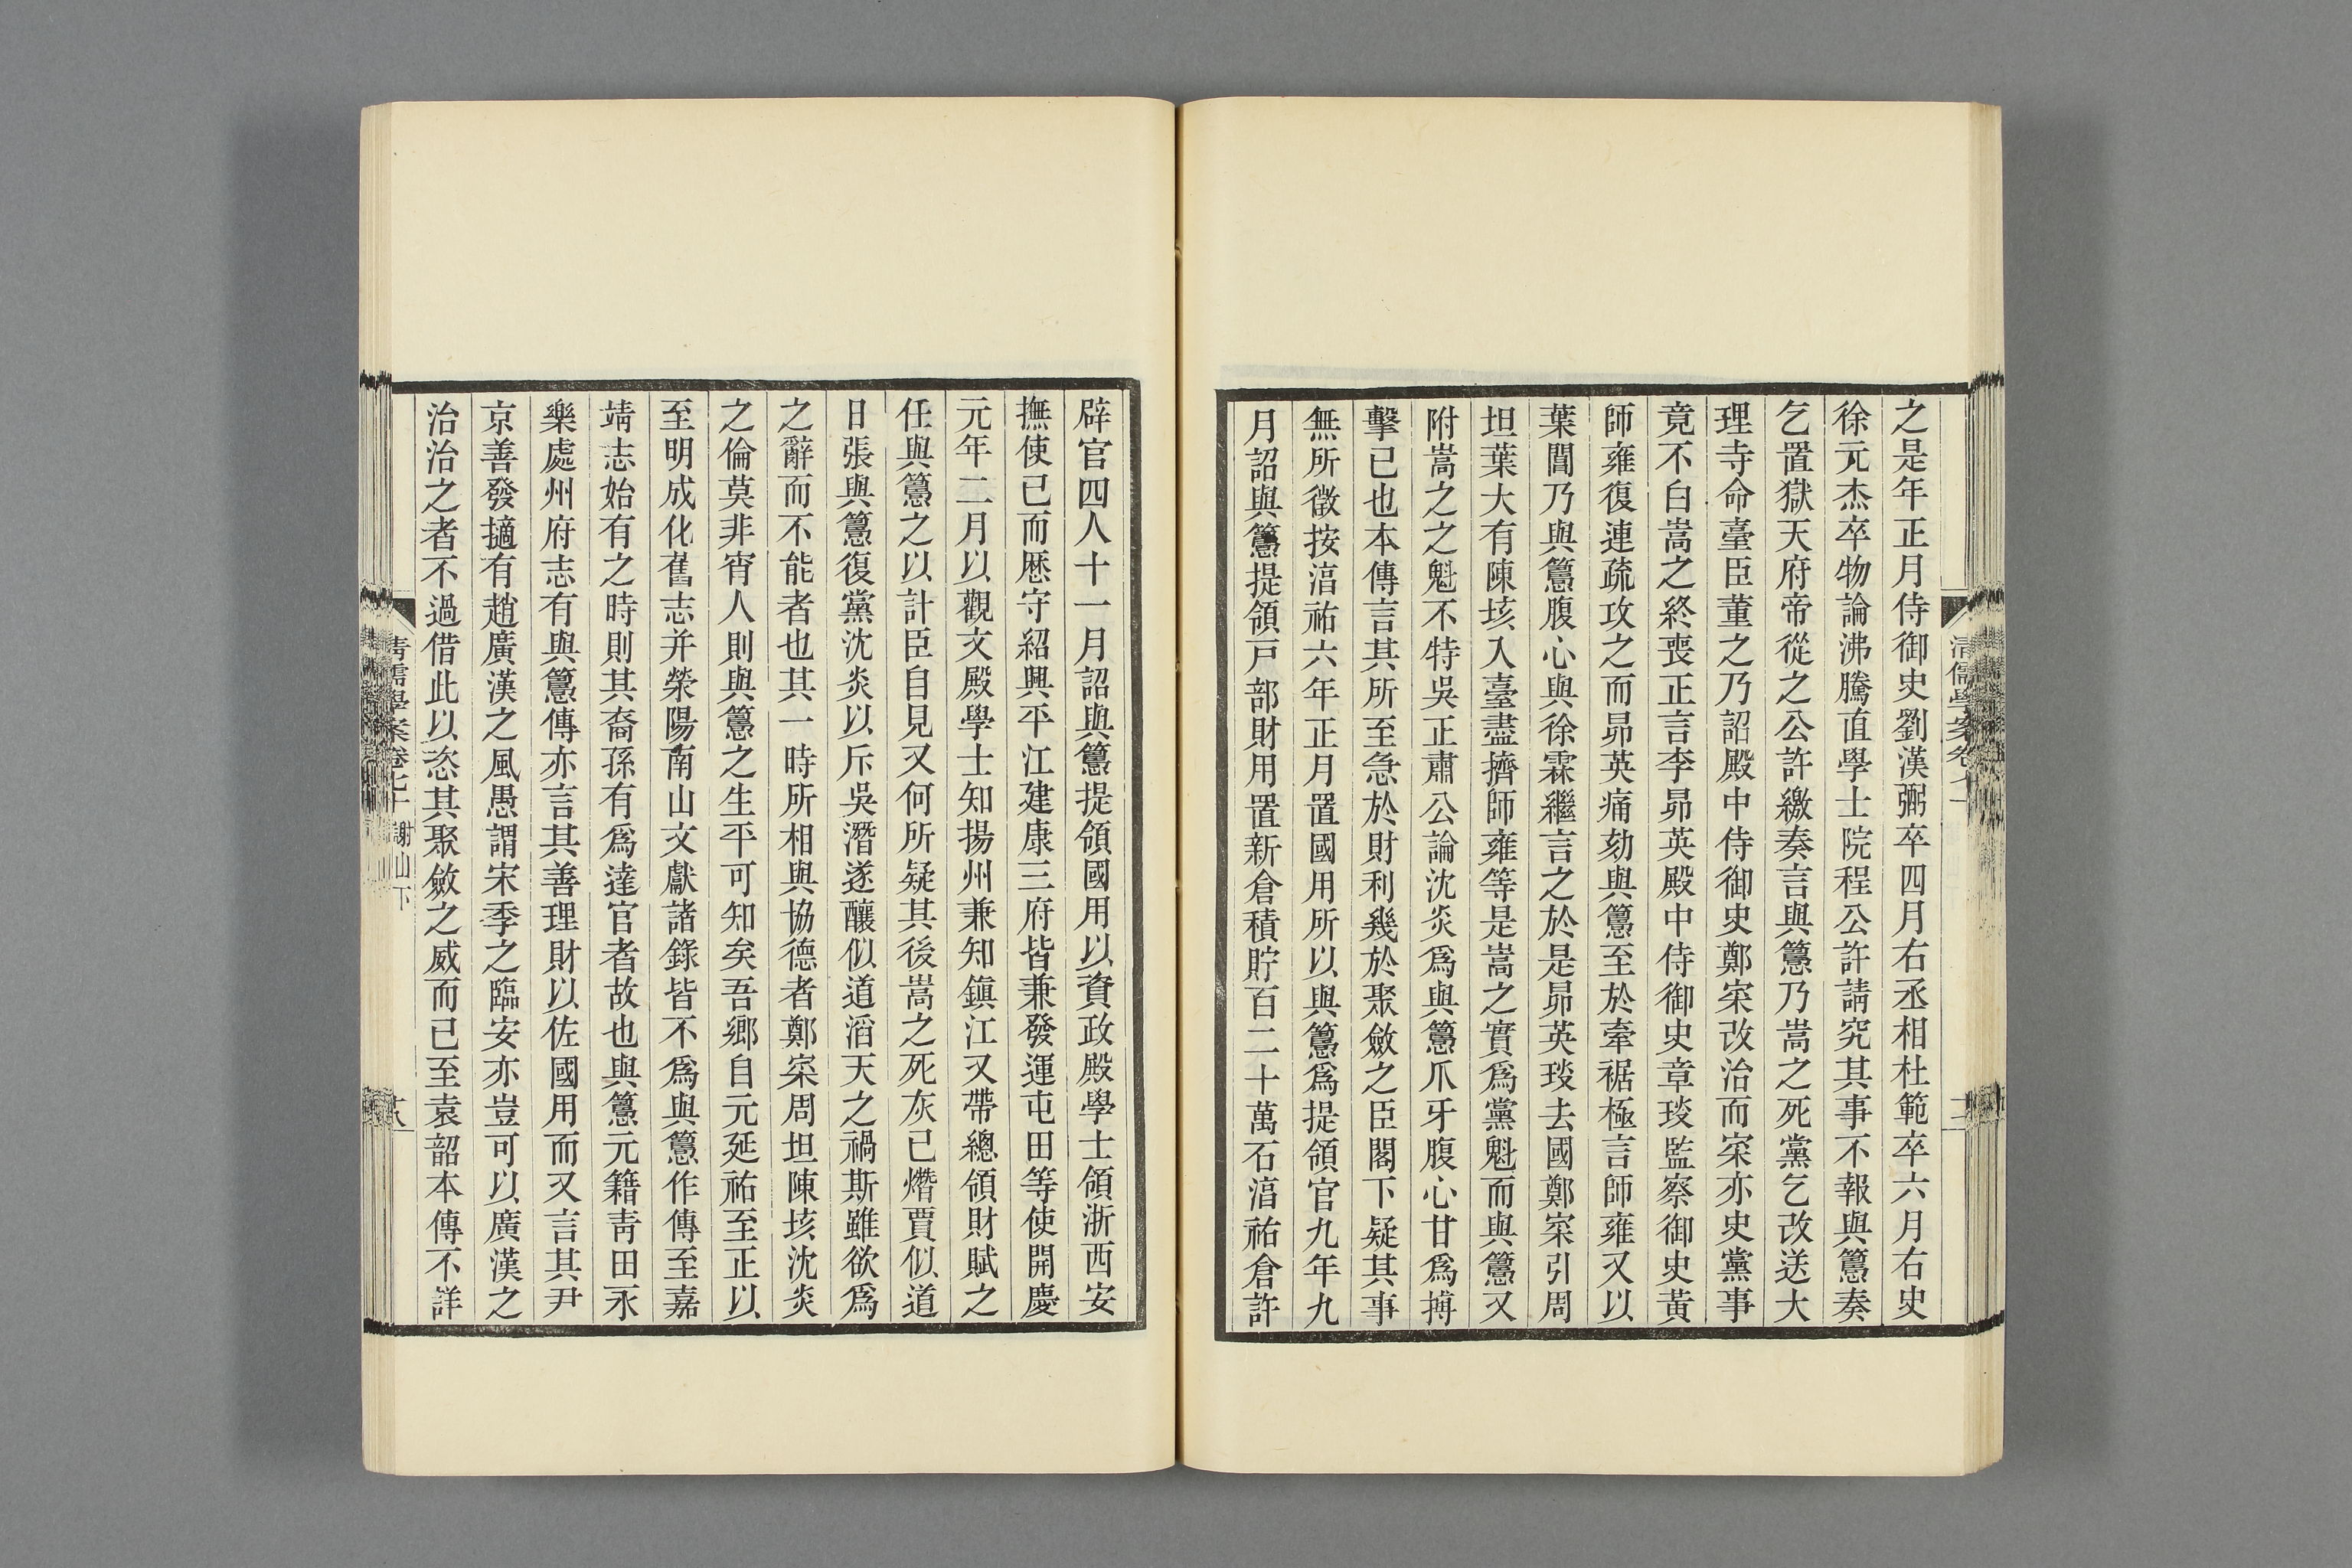 之是年正月侍御史劉漢弼卒四月右丞相杜範卒六月右史
徐元杰卒物論沸騰直學士院程公許請究其事不報與𥲅奏
乞置獄天府帝從之公許繳奏言與𥲅乃嵩之死黨乞改送大
理寺命臺臣董之乃詔殿中侍御史鄭寀改治而寀亦史黨事
竟不白嵩之終喪正言李昴英殿中侍御史章琰監察御史黃
師雍復連疏攻之而昴英痛劾與𥲅至於牽裾極言師雍又以
葉閶乃與𥲅腹心與徐霖繼言之於是昴英琰去國鄭寀引周
坦葉大有陳垓入臺盡擠師雍等是嵩之實爲黨魁而與𥲅又
附嵩之之魁不特吳正肅公論沈炎爲與𥲅爪牙腹心甘爲搏
擊已也本傳言其所至急於財利幾於聚斂之臣閣下疑其事
無所徵按湻祐六年正月置國用所以與𥲅爲提領官九年九
月詔與𥲅提領戸部財用置新倉積貯百二十萬石湻祐倉許
辟官四人十一月詔與𥲅提領國用以資政殿學士領浙西安
撫使已而歴守紹興平江建康三府皆兼發運屯田等使開慶
元年二月以觀文殿學士知揚州兼知鎭江又帶總領財賦之
任與𥲅之以計臣自見又何所疑其後嵩之死灰已熸賈似道
日張與𥲅復黨沈炎以斥吳潛遂釀似道滔天之禍斯雖欲爲
之辭而不能者也其一時所相與協德者鄭寀周坦陳垓沈炎
之倫莫非宵人則與𥲅之生平可知矣吾鄉自元延祐至正以
至明成化舊志并榮陽南山文獻諸錄皆不爲與𥲅作傳至嘉
靖志始有之時則其裔孫有爲達官者故也與𥲅元籍靑田永
樂處州府志有與𥲅傳亦言其善理財以佐國用而又言其尹
京善發擿有趙廣漢之風愚謂宋季之臨安亦豈可以廣漢之
治治之者不過借此以恣其聚斂之威而已至袁韶本傳不詳
清儒學案卷七十 謝山下